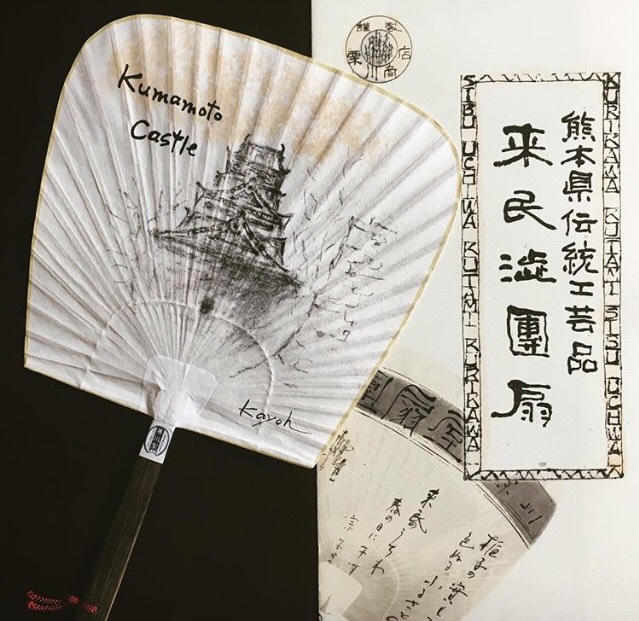 Kumamoto
Castle
Kayoh
謹製
栗商店
熊本県伝統工芸品
来民澁團扇
KURIKAWA KUTAMI SIBU UCHIWA
SIBU UCHIWA KUTAMI KURIKAWA
梔子の実も
色ぬる小さき
来民のうちわ
春の日に干す